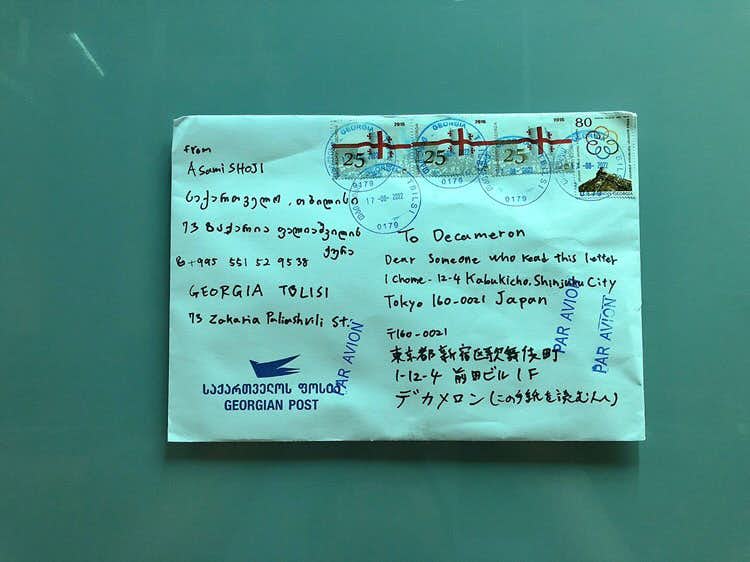 from
Asami SHOJI
საქართველო, თბილისი
73 ზაქარია ფალიაშვილის
ქუჩა
+995 551 52 9538
GEORGIA TBLISI
73 Zakaria Paliashvili St.
საქართველოს ფოსტა
GEORGIAN POST
2016
25
2016
25
2016
25
80
GEORGIA
0179
17-08-2022
0179
0179
0179
To Decameron
Dear Someone who read this letter
1 Chome-12-4 Kabukicho, Shinjuku City
Tokyo 160-0021 Japan
〒160-0021
東京都新宿区歌舞伎町
1-12-4 前田ビル 1F
デカメロン(この手紙を読む人へ)
PAR AVION
PAR AVION
PAR AVION